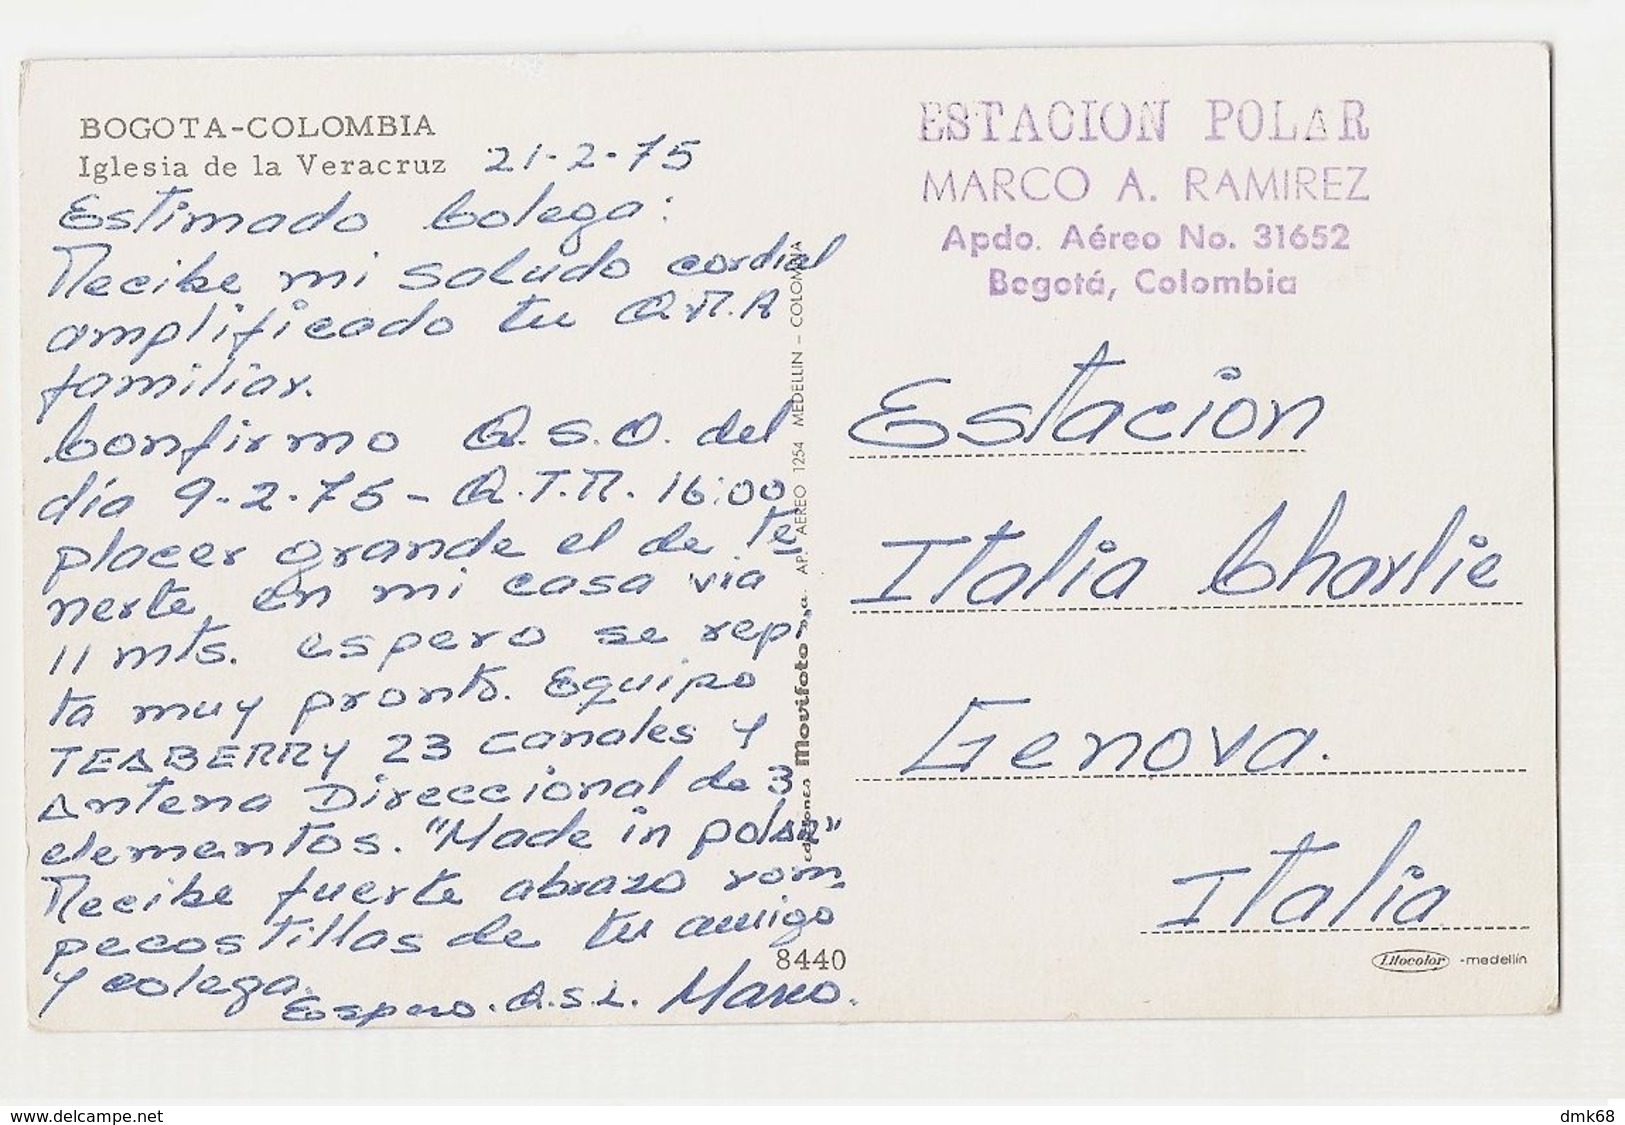 BOGOTA-COLOMBIA
Iglesia de la Veracruz
21-2-75
Estimado Colega:
Recibe mi saludo cordial
amplificado tu Q.R.A
familiar.
Confirmo Q.S.O. del
día 9-2-75 - Q.T.R. 16:00
placer grande el de te
nerte en mi casa via
11 mts. espero se repi
ta muy pronto. Equipo
TEABERRY 23 canales y
Antena Direccional de 3
elementos. "Made in polar"
Recibe fuerte abrazo rom-
pecostillas de tu amigo
y colega.
Espero. Q.S.L. Marco.
8440
ediciones Movifoto AP. AEREO 1254 MEDELLIN - COLOMBIA
ESTACION POLAR
MARCO A. RAMIREZ
Apdo. Aéreo No. 31652
Bogotá, Colombia
Estacion
Italia Charlie
Genova.
Italia
Litocolor -medellín
www.delcampe.net
dmk68